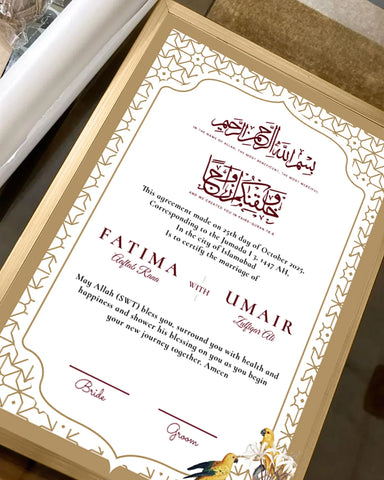 بسم الله الرحمن الرحيم
IN THE NAME OF ALLAH, THE MOST BENEFICENT, THE MOST MERCIFUL
وخلقناكم أزواجا
AND WE CREATED YOU IN PAIRS QURAN 78:8
This agreement made on 25th day of October 2025,
Corresponding to the Jumada I 2, 1447 AH,
In the city of Islamabad
Is to certify the marriage of
FATIMA
Aftab Raza
WITH
UMAIR
Zulfiqar Ali
May Allah (SWT) bless you, surround you with health and
happiness and shower his blessing on you as you begin
your new journey together. Ameen
Bride
Groom